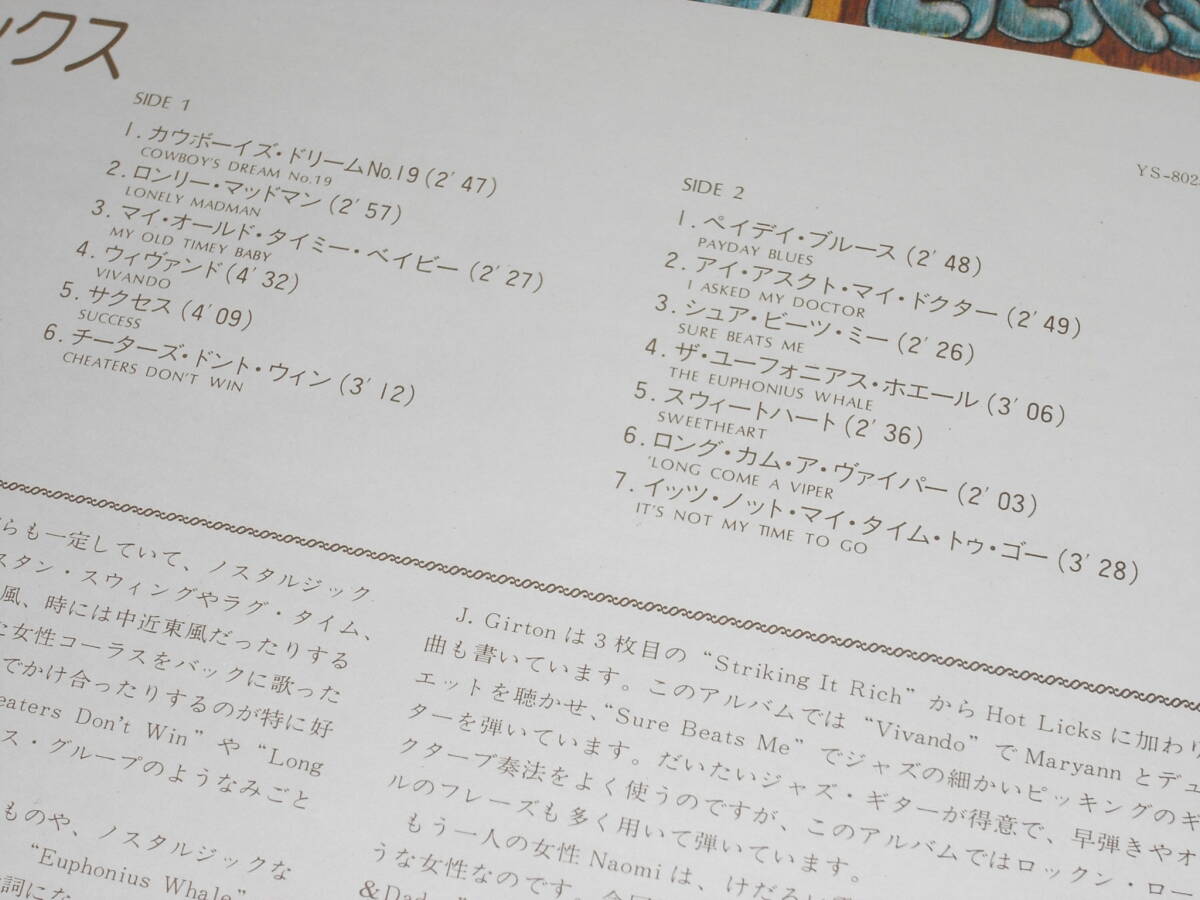 ックス
SIDE 1
1. カウボーイズ・ドリームNo.19 (2' 47)
COWBOY'S DREAM No.19
2. ロンリー・マッドマン (2' 57)
LONELY MADMAN
3. マイ・オールド・タイミー・ベイビー (2' 27)
MY OLD TIMEY BABY
4. ウィヴァンド (4' 32)
VIVANDO
5. サクセス (4' 09)
SUCCESS
6. チーターズ・ドント・ウィン (3' 12)
CHEATERS DON'T WIN
YS-802
SIDE 2
1. ペイデイ・ブルース (2' 48)
PAYDAY BLUES
2. アイ・アスクト・マイ・ドクター (2' 49)
I ASKED MY DOCTOR
3. シュア・ビーツ・ミー (2' 26)
SURE BEATS ME
4. ザ・ユーフォニアス・ホエール (3' 06)
THE EUPHONIUS WHALE
5. スウィートハート (2' 36)
SWEETHEART
6. ロング・カム・ア・ヴァイパー (2' 03)
'LONG COME A VIPER
7. イッツ・ノット・マイ・タイム・トゥ・ゴー (3' 28)
IT'S NOT MY TIME TO GO
らも一定していて、ノスタルジック
スタン・スウィングやラグ・タイム、
風、時には中近東風だったりする
た女性コーラスをバックに歌った
でかけ合ったりするのが特に好
eaters Don't Win" や "Long
ス・グループのようなみごと
ものや、ノスタルジックな
"Euphonius Whale"
詞にな
J. Girtonは3枚目の "Striking It Rich" からHot Licksに加わり
曲も書いています。このアルバムでは "Vivando" でMaryannとデュ
エットを聴かせ、"Sure Beats Me" でジャズの細かいピッキングのギ
ターを弾いています。だいたいジャズ・ギターが得意で、早弾きやオ
クターブ奏法をよく使うのですが、このアルバムではロックン・ロー
ルのフレーズも多く用いて弾いています。
もう一人の女性Naomiは、けだるい
うな女性なのです。